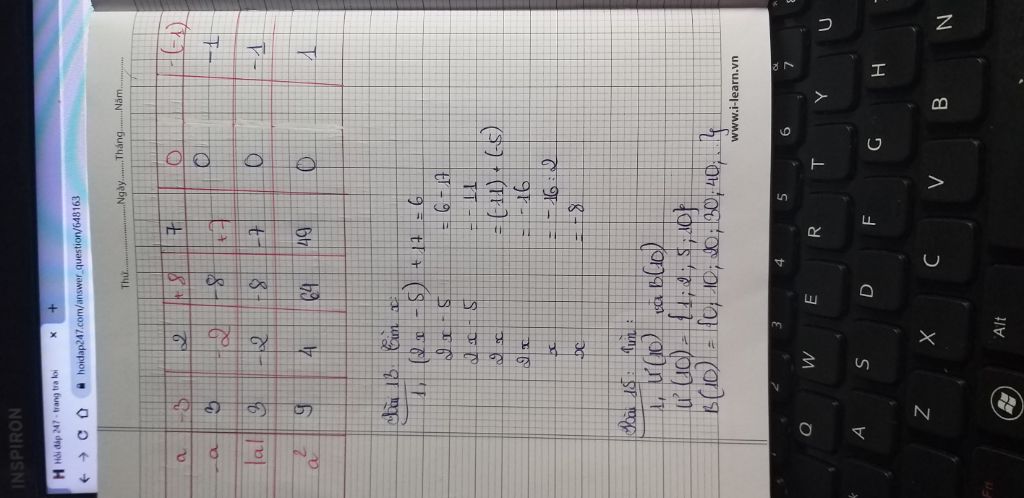 INSPIRON
H Hỏi đáp 247 - trang tra loi × +
hoidap247.com/answer_question/648163
Thứ Ngày Tháng Năm
a -3 2 +8 7 0 -(-1)
-a 3 -2 -8 +7 0 -1
|a| 3 -2 -8 -7 0 -1
a² 9 4 64 49 0 1
Bài 13 Tìm x:
1, (2x - 5) + 17 = 6
2x - 5 = 6 - 17
2x - 5 = -11
2x = (-11) + (-5)
2x = -16
x = -16 : 2
x = -8
Bài 15: Tìm:
1, Ư(10) và B(10)
Ư(10) = {1; 2; 5; 10}
B(10) = {0; 10; 20; 30; 40; ...}
www.i-learn.vn
2 3 4 5 6 7 8
Q W E R T Y U
A S D F G H
Z X C V B N
Alt